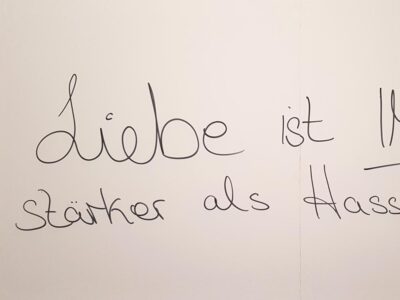 Liebe ist
stärker als Hass